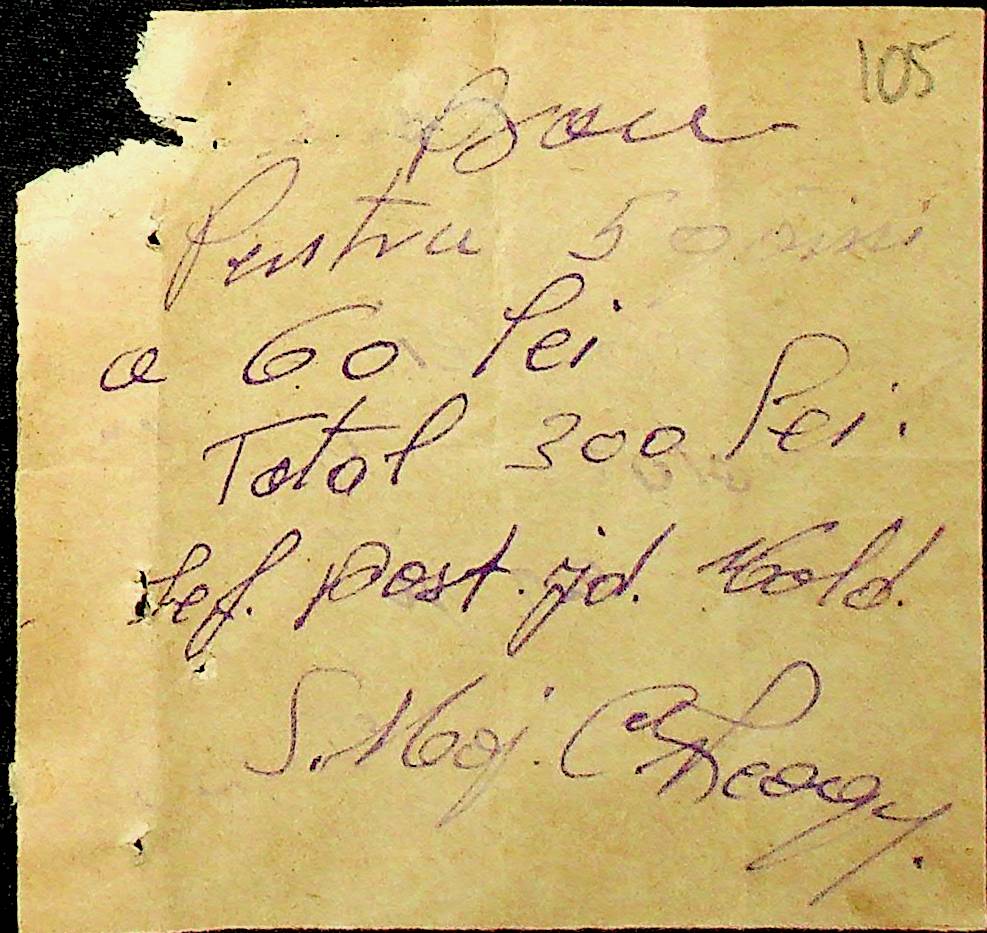 105
Bon
Pentru 5 pâini
a 60 lei
Total 300 lei.
Șef. post. jd. Mold.
S. Maj.